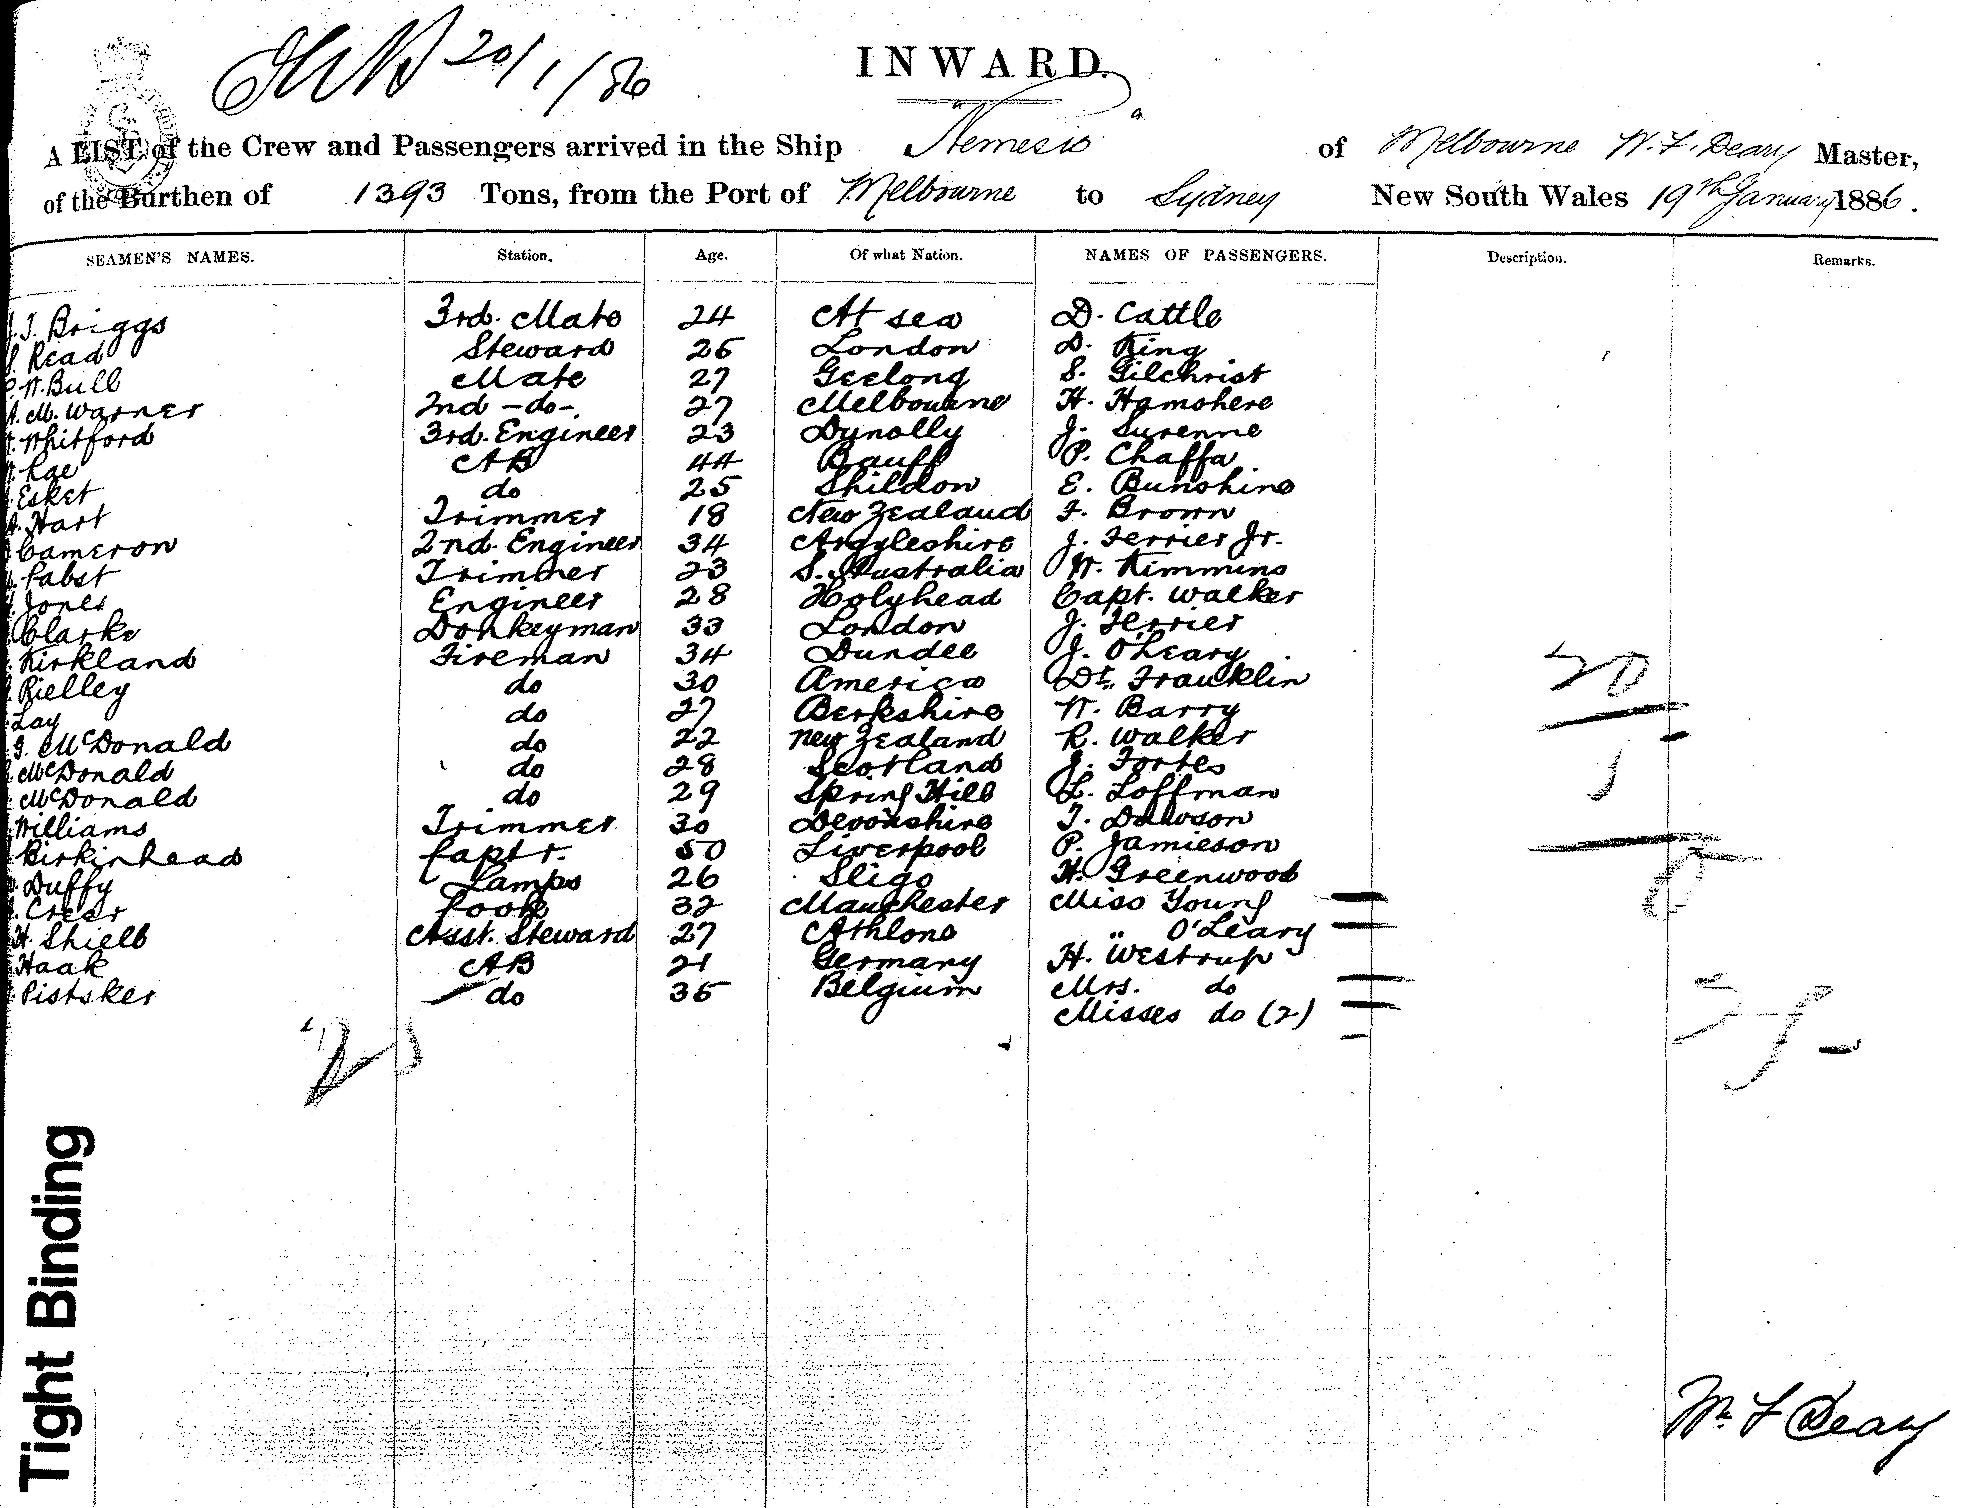 20/1/86
INWARD.
A LIST of the Crew and Passengers arrived in the Ship "Nemesis" of Melbourne W. F. Deary Master,
of the Burthen of 1393 Tons, from the Port of Melbourne to Sydney New South Wales 19th January 1886.
SEAMEN'S NAMES. Station. Age. Of what Nation. NAMES OF PASSENGERS. Description. Remarks.
J. Briggs 3rd. Mate 24 At sea D. Cattle
Read Steward 26 London D. King
W. Bull Mate 27 Geelong S. Gilchrist
M. Warner 2nd -do-. 27 Melbourne H. Hamshere
Whitford 3rd. Engineer 23 Dynolly J. Surenne
Rae AB 44 Banff P. Chaffa
Esket do 25 Shildon E. Bunshine
Hart Trimmer 18 New Zealand F. Brown
Cameron 2nd. Engineer 34 Argyleshire J. Ferrier Jr.
Pabst Trimmer 23 S. Australia W. Kimmins
Jones Engineer 28 Holyhead Capt. Walker
Clarke Donkeyman 33 London J. Ferrier
Kirkland Fireman 34 Dundee J. O'Leary
Rielley do 30 America Dr. Franklin
Lay do 27 Berkshire W. Barry
J. McDonald do 22 New Zealand R. Walker
McDonald do 28 Scotland J. Fortes
McDonald do 29 Spring Hill L. Loffman
Williams Trimmer 30 Devonshire T. Dawson
Birkinhead Captr. 50 Liverpool P. Jamieson
Duffy Lamps 26 Sligo H. Greenwood
Creer Cook 32 Manchester Miss Young
H. Shiell Asst. Steward 27 Athlone " O'Leary
Haak AB 21 Germany H. Westrup
Pistsker do 35 Belgium Mrs. do
Misses do (2)
20
1
Tight Binding
Wm F Deary